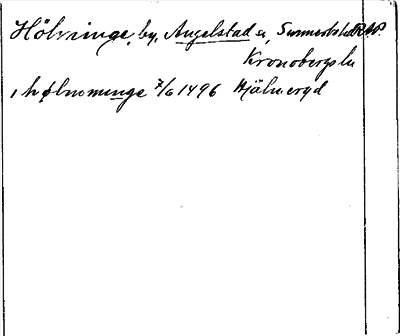 Hölminge, by, Angelstad s, Sunnerbo hd
Kronobergs ln
i hølmominge 7/6 1496 Hjälmeryd